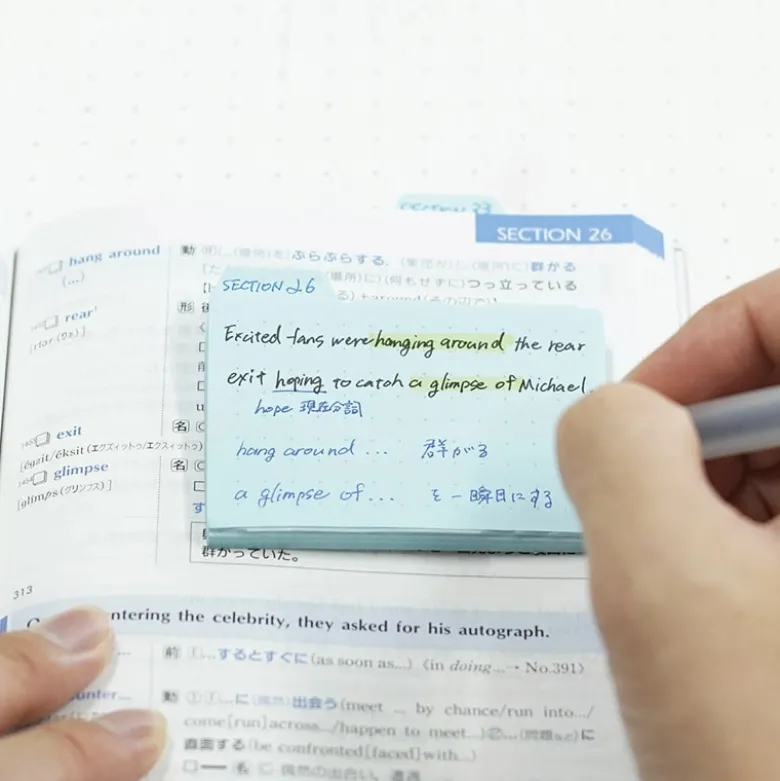 SECTION 23
SECTION 26
hang around
(...)
動
ぶらぶらする.
群がる
(何もせずに)つっ立っている
rear¹
形
exit
名
[égzit/éksit(エグズィットゥ/エクスィットゥ)]
glimpse
名
[glimps(グリンプス)]
SECTION 26
Excited fans were hanging around the rear
exit hoping to catch a glimpse of Michael.
hope 現在分詞
hang around ... 群がる
a glimpse of ... を一瞬目にする
群がっていた。
313
ntering the celebrity, they asked for his autograph.
前 ①...するとすぐに(as soon as...)《in doing...→ No.391》
unter...
動 ①①...に(偶然)出会う(meet ... by chance/run into.../
come[run]across.../happen to meet...)②...(問題など)に
直面する(be confronted[faced]with...)
名 偶然の出会い, 遭遇